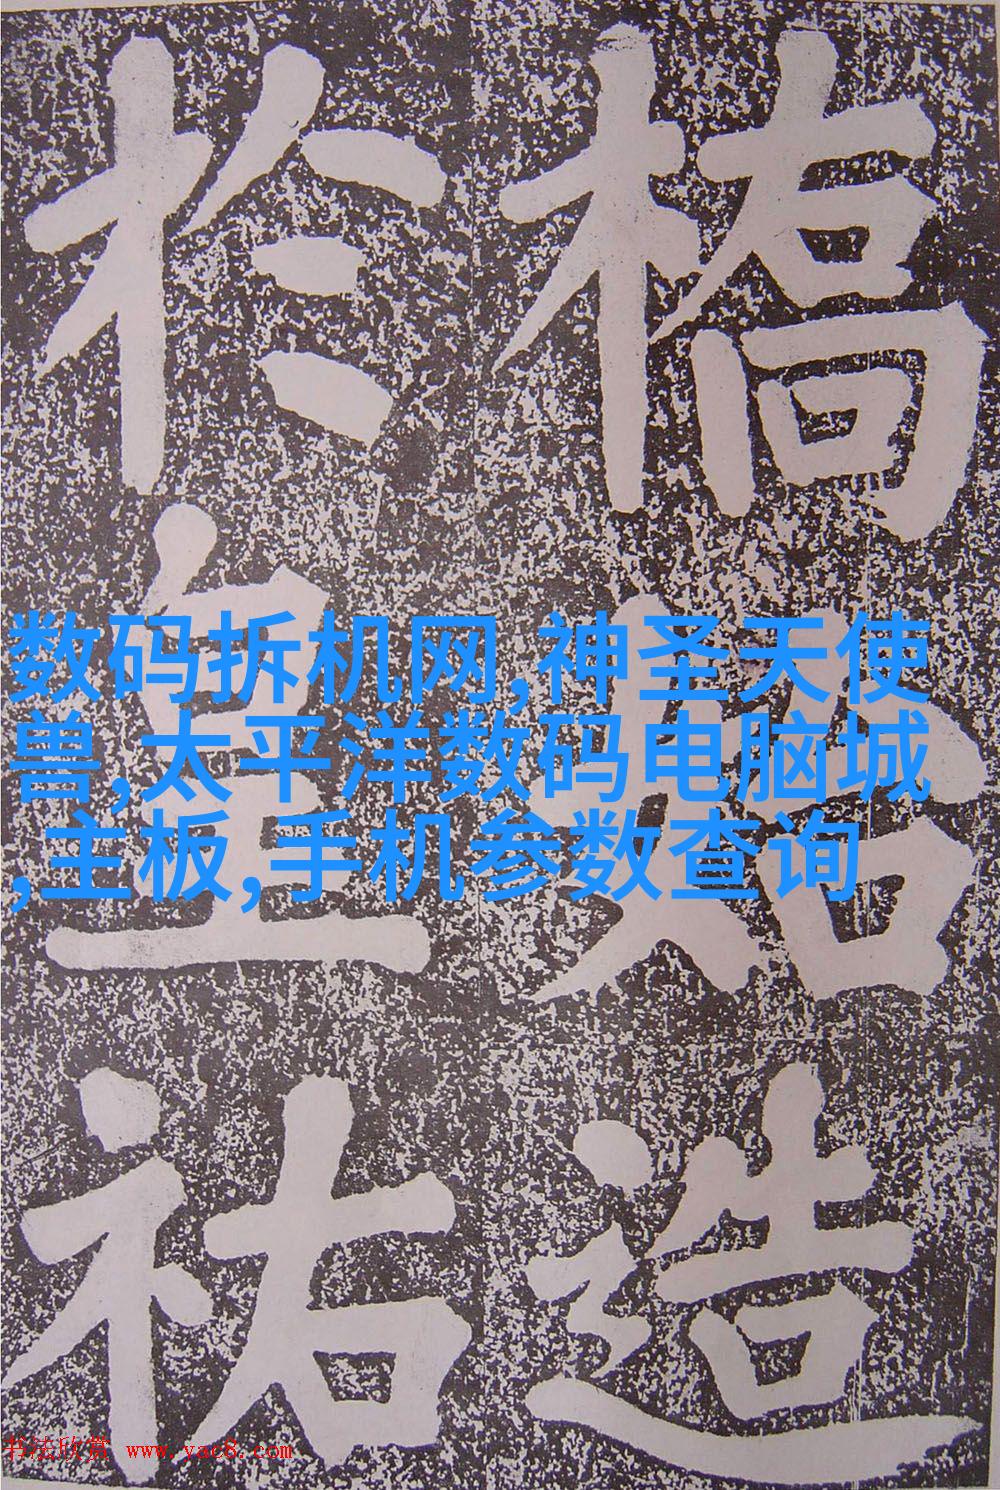 橋始造
於皇祐
数码拆机网,神圣天使
兽,太平洋数码电脑城
,主板,手机参数查询
书法欣赏 www.yac8.com